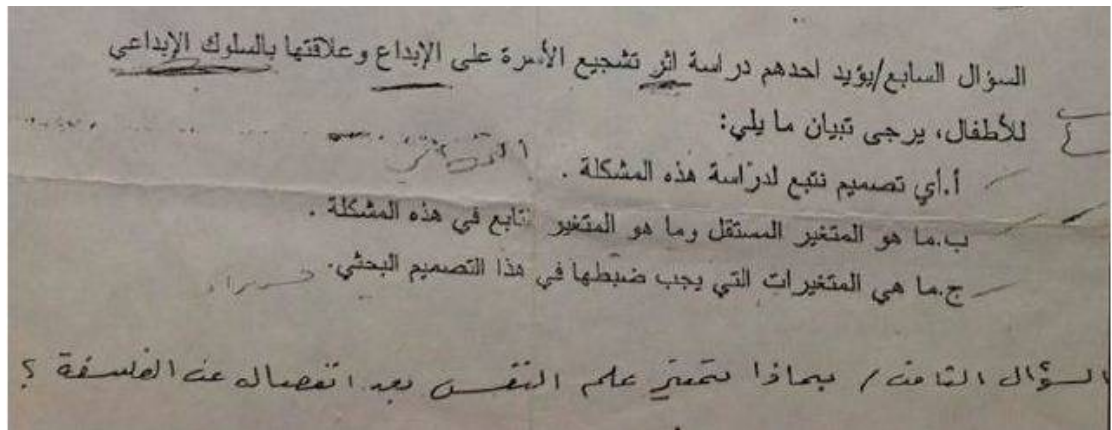 السؤال السابع/يؤيد احدهم دراسة اثر تشجيع الأسرة على الإبداع وعلاقتها بالسلوك الإبداعي
للأطفال، يرجى تبيان ما يلي:
أ.أي تصميم نتبع لدراسة هذه المشكلة .
ب.ما هو المتغير المستقل وما هو المتغير التابع في هذه المشكلة .
ج.ما هي المتغيرات التي يجب ضبطها في هذا التصميم البحثي.
السؤال الثامن / بماذا تميز علم النفس بعد انفصاله عن الفلسفة ؟